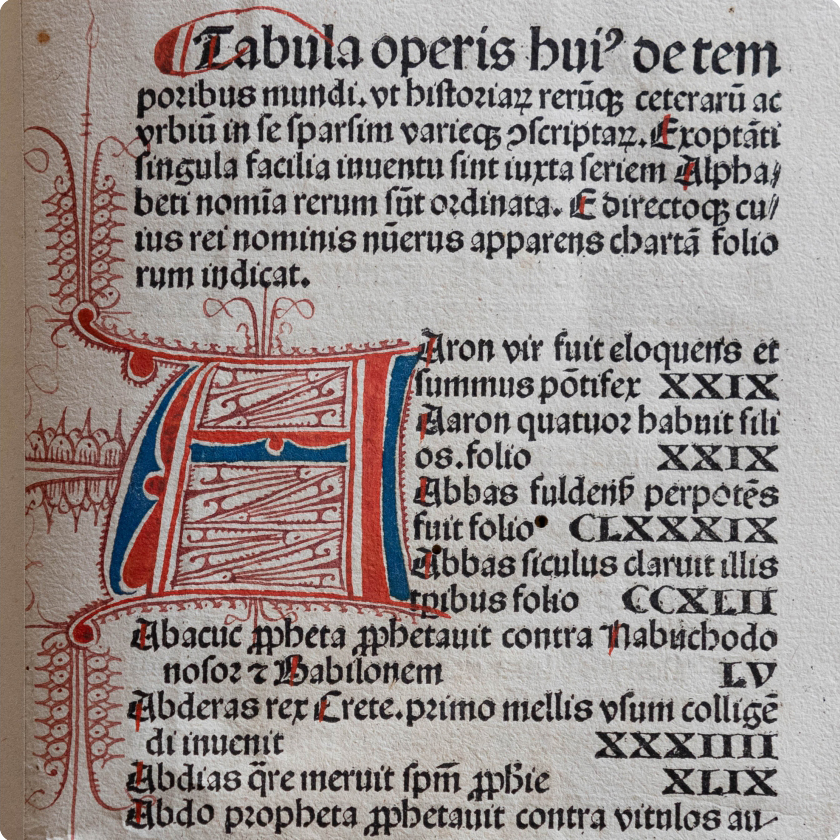 Tabula operis huiꝰ de tem
poribus mundi. vt historiaꝝ rerūqꝫ ceterarū ac
vrbiū in se sparsim varieqꝫ ↄscriptaꝝ. Exoptāti
singula facilia inuentu sint iuxta seriem Alpha/
beti nomīa rerum sūt ordinata. E directoqꝫ cu/
ius rei nominis nūerus apparens chartā folio
rum indicat.
Aron vir fuit eloquens et
summus pōtifex XXIX
Aaron quatuor habuit fili
os. folio XXIX
Abbas fuldensꝭ perpotēs
fuit folio CLXXXIX
Abbas siculus claruit illis
tꝑibus folio CCXLII
Abacuc ꝓpheta ꝓphetauit contra Nabuchodo
nosor ⁊ Babilonem LV
Abderas rex Crete. primo mellis vsum colligē
di inuenit XXXIIII
Abdias q̄re meruit spm̄ ꝓphīe XLIX
Abdo propheta ꝓphetauit contra vitulos au